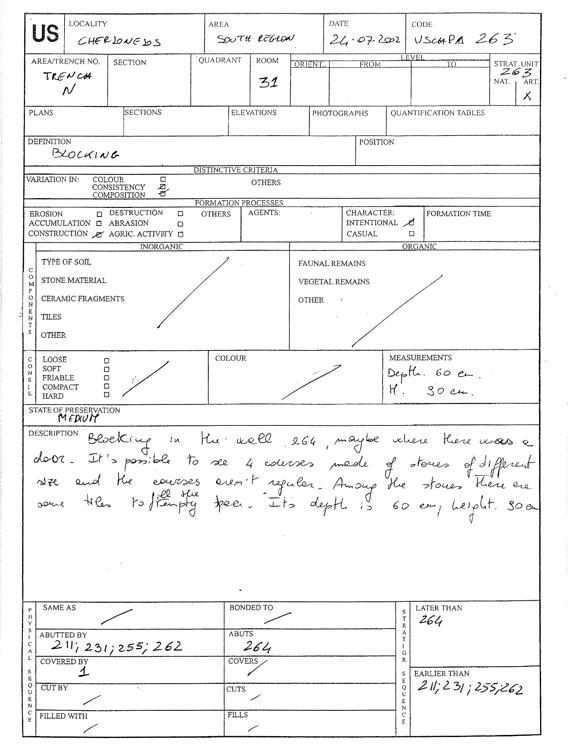 US
LOCALITY
CHERSONESOS
AREA
SOUTH REGION
DATE
24-07-2002
CODE
USCHPA 263
AREA/TRENCH NO.
TRENCH
N
SECTION
QUADRANT
ROOM
31
LEVEL
ORIENT. FROM TO
STRAT. UNIT
263
NAT. ART.
X
PLANS
SECTIONS
ELEVATIONS
PHOTOGRAPHS
QUANTIFICATION TABLES
DEFINITION
BLOCKING
POSITION
DISTINCTIVE CRITERIA
VARIATION IN: COLOUR
CONSISTENCY
COMPOSITION
OTHERS
FORMATION PROCESSES
EROSION DESTRUCTION OTHERS
ACCUMULATION ABRASION
CONSTRUCTION AGRIC. ACTIVITY
AGENTS:
CHARACTER:
INTENTIONAL
CASUAL
FORMATION TIME
COMPONENTS
INORGANIC
TYPE OF SOIL
STONE MATERIAL
CERAMIC FRAGMENTS
TILES
OTHER
ORGANIC
FAUNAL REMAINS
VEGETAL REMAINS
OTHER
CONSIS.
LOOSE
SOFT
FRIABLE
COMPACT
HARD
COLOUR
MEASUREMENTS
Depth. 60 cm.
H. 30 cm.
STATE OF PRESERVATION
MEDIUM
DESCRIPTION Blocking in the wall 264, maybe where there was a
door. It's possible to see 4 courses made of stones of different
size and the courses aren't regular. Among the stones there are
some tiles to fill the empty . Its depth is 60 cm; height. 30 cm
PHYSICAL SEQUENCE
SAME AS
BONDED TO
ABUTTED BY
211; 231; 255; 262
ABUTS
264
COVERED BY
1
COVERS
CUT BY
CUTS
FILLED WITH
FILLS
STRATIGR. SEQUENCE
LATER THAN
264
EARLIER THAN
211; 231; 255; 262